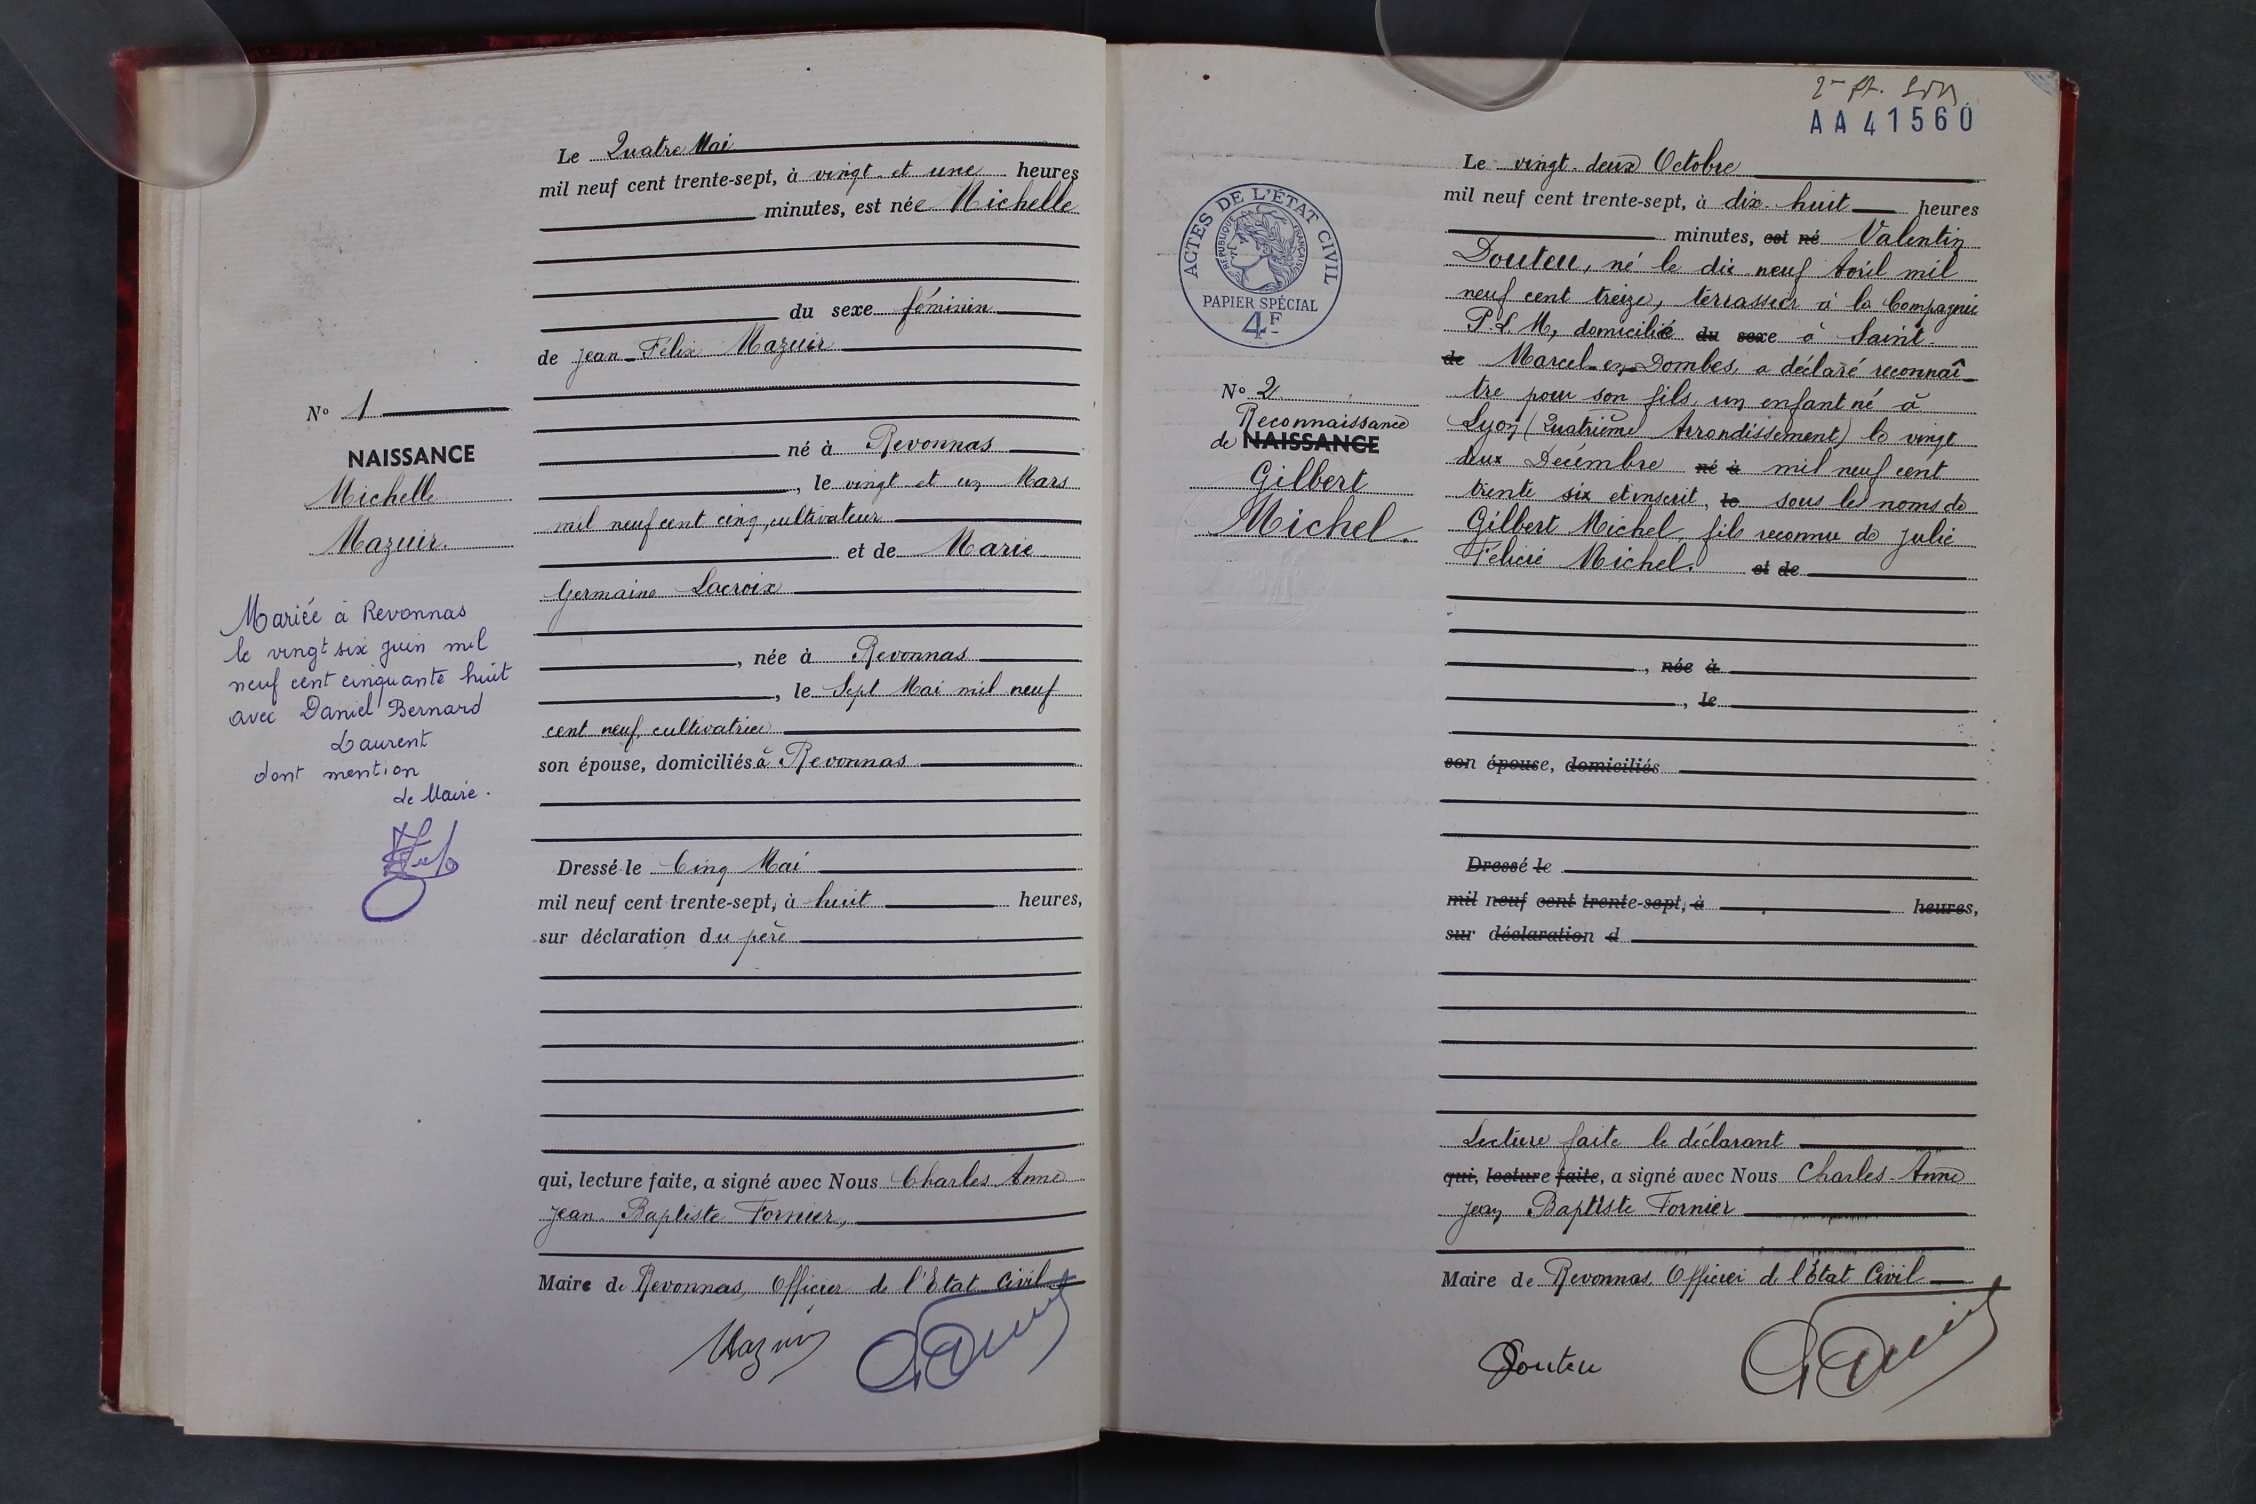 Le Quatre Mai
mil neuf cent trente-sept, à vingt et une heures
minutes, est née Michelle
du sexe féminin
de Jean-Félix Mazuir
N° 1
NAISSANCE
Michelle
Mazuir.
né à Revonnas
, le vingt et un Mars
mil neuf cent cinq, cultivateur
et de Marie
Germaine Lacroix
, née à Revonnas
, le Sept Mai mil neuf
cent neuf, cultivatrice
son épouse, domiciliés à Revonnas
Mariée à Revonnas
le vingt six juin mil
neuf cent cinquante huit
avec Daniel Bernard
Laurent
dont mention
Le Maire.
Dressé le Cinq Mai
mil neuf cent trente-sept, à huit heures,
sur déclaration du père
qui, lecture faite, a signé avec Nous Charles Anne
Jean Baptiste Fornier,
Maire de Revonnas, Officier de l'Etat Civil
Mazuir
AA41560
ACTES DE L'ÉTAT CIVIL
RÉPUBLIQUE FRANÇAISE
PAPIER SPÉCIAL
4F
Le vingt-deux Octobre
mil neuf cent trente-sept, à dix-huit heures
minutes, est né Valentin
Douteu, né le dix neuf Avril mil
neuf cent treize, terrassier à la Compagnie
P.L.M, domicilié du sexe à Saint-
de Marcel-en-Dombes, a déclaré reconnaî-
tre pour son fils, un enfant né à
Lyon (Quatrième Arrondissement) le vingt
deux Décembre né à mil neuf cent
trente six et inscrit, le sous les noms de
Gilbert Michel, fils reconnu de Julie
Félicie Michel. et de
N° 2
Reconnaissance
de NAISSANCE
Gilbert
Michel.
, née à
, le
son épouse, domiciliés
Dressé le
mil neuf cent trente-sept, à heures,
sur déclaration d
Lecture faite le déclarant
qui, lecture faite, a signé avec Nous Charles-Anne
Jean Baptiste Fornier
Maire de Revonnas, Officier de l'État Civil
Douteu